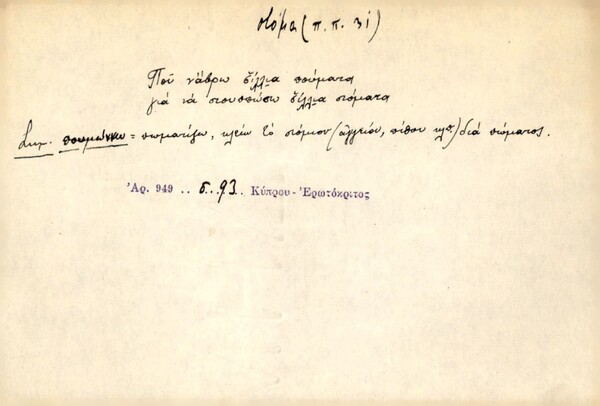 στόμα (π.π. 31)
Ποῦ νάβρω ξίλλια πούματα
γιά νά στουππώσω ξίλλια στόματα
Σημ. πουμώννω = πωματίζω, κλείω τό στόμιον (ἀγγείου, πίθου κλπ.) διά πώματος.
Ἀρ. 949 .. σ. 93. Κύπρου - Ἐρωτόκριτος